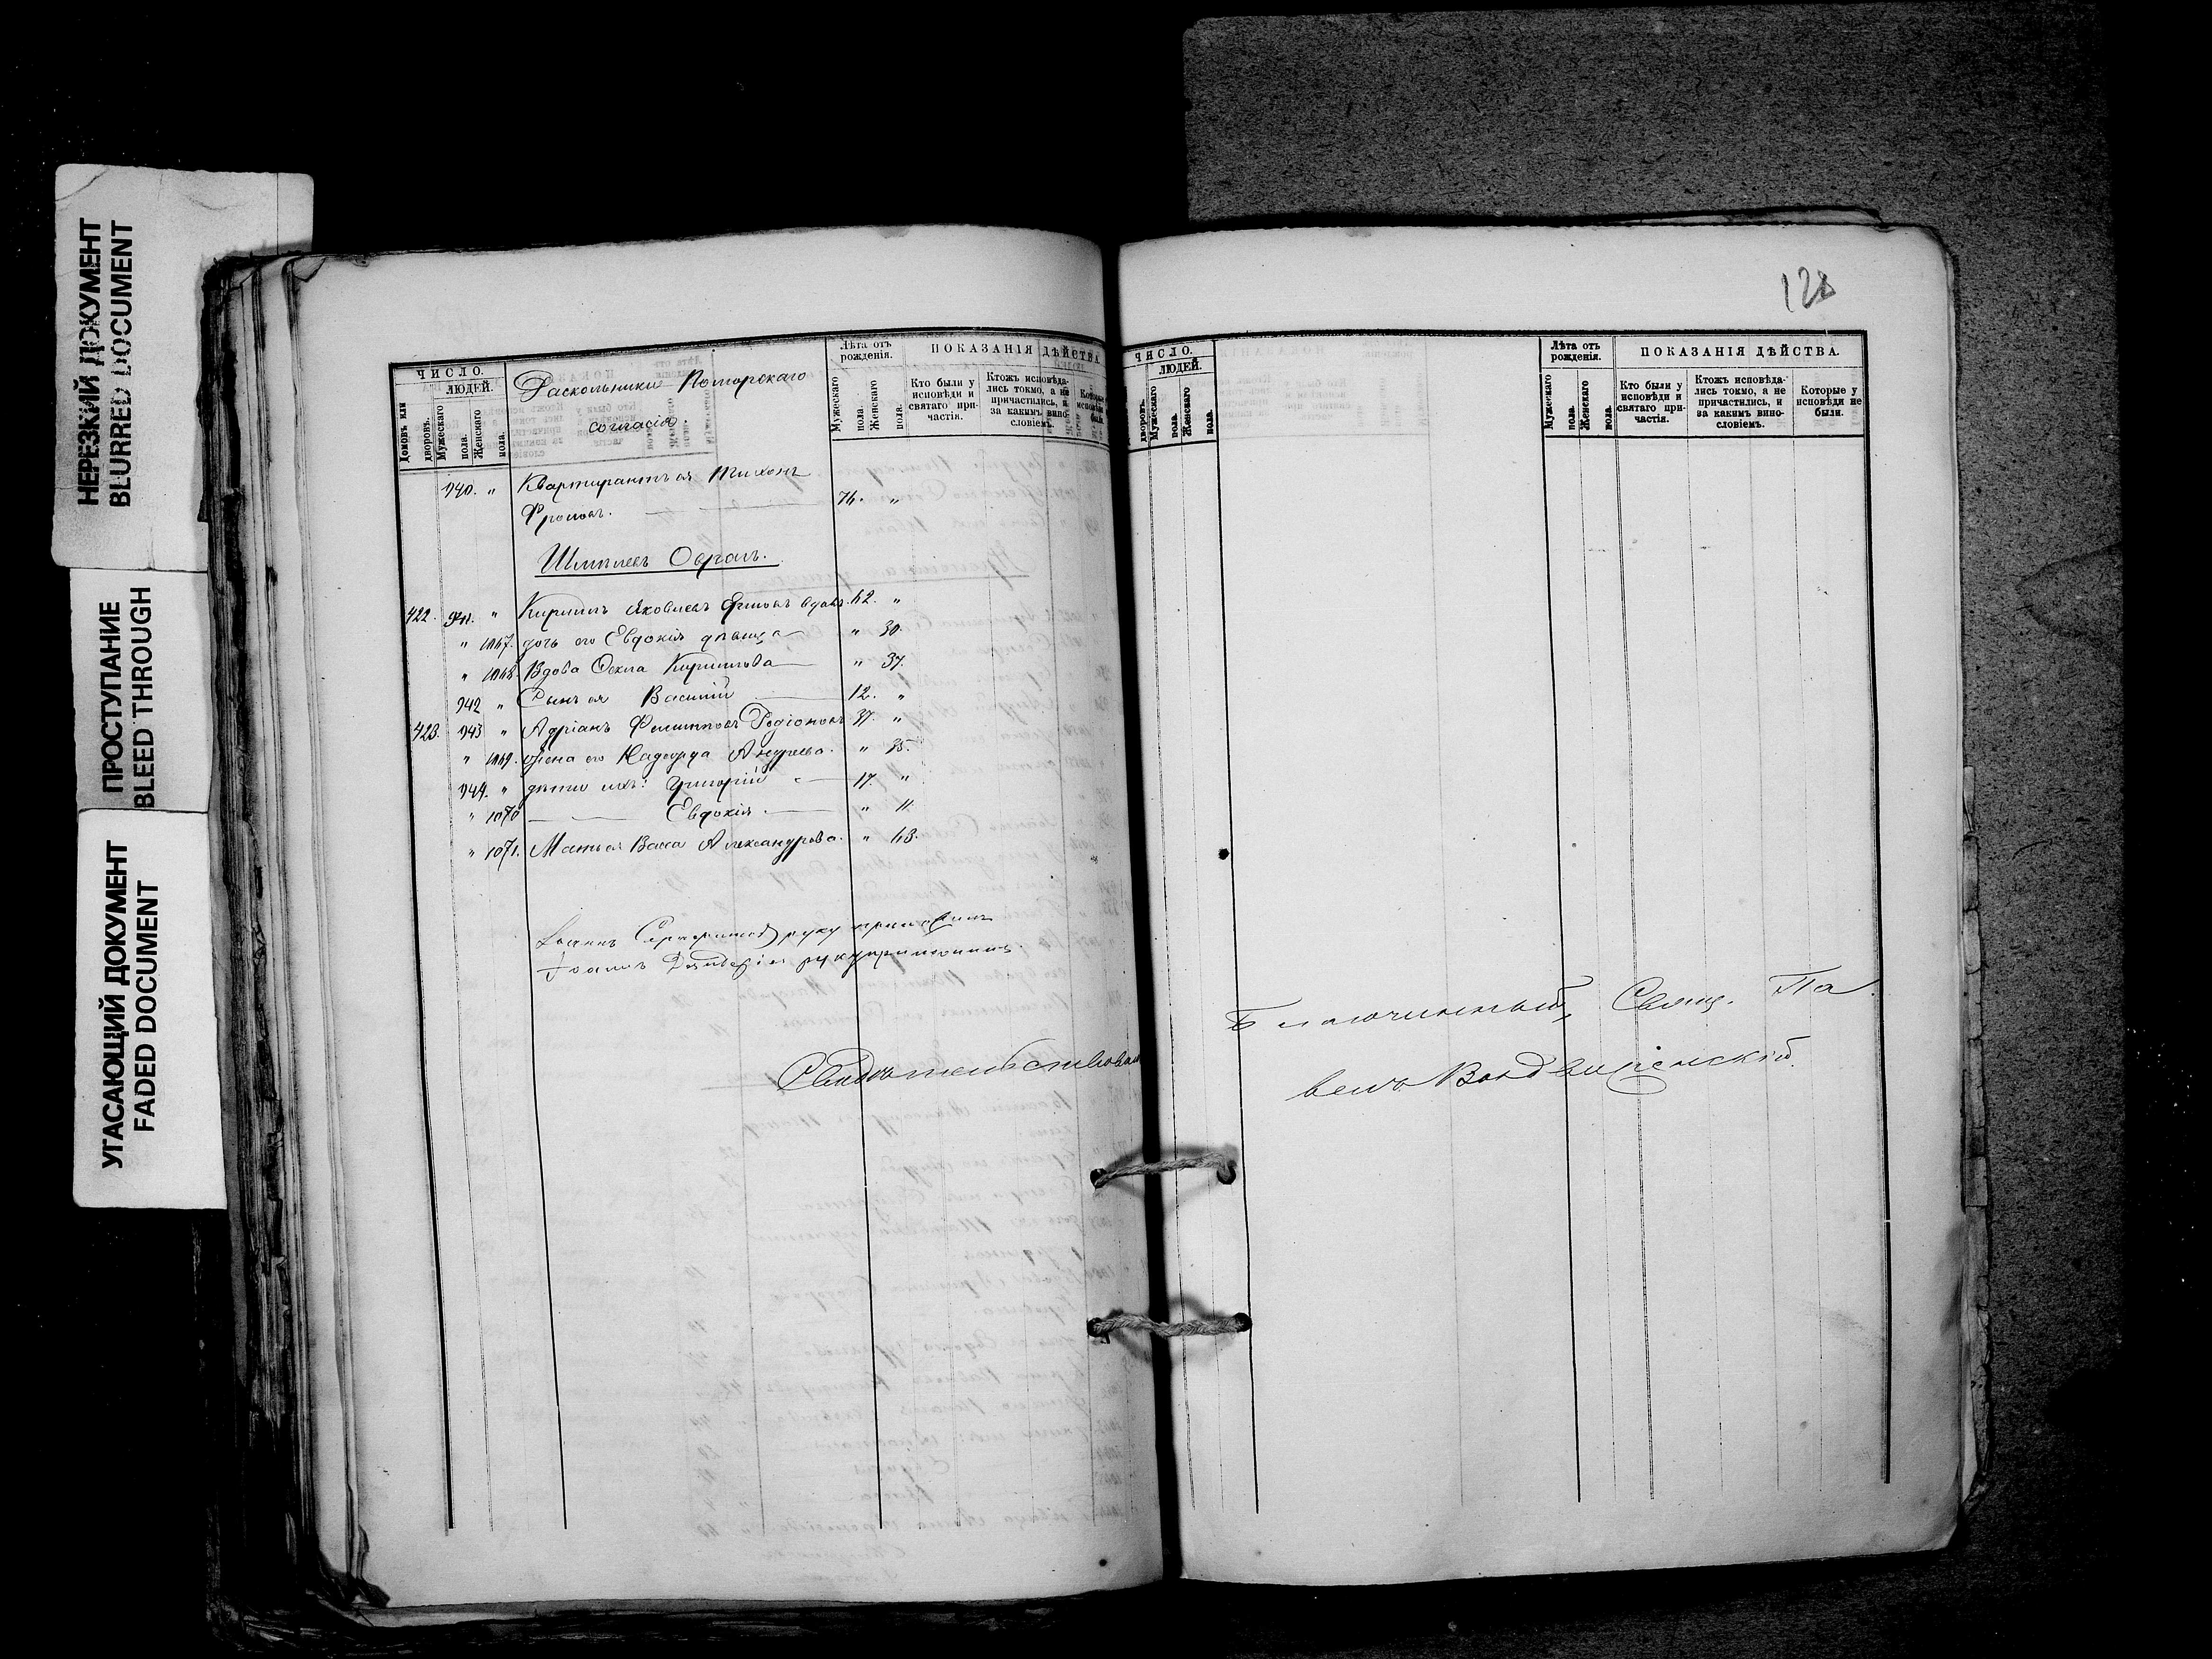 НЕРЕЗКИЙ ДОКУМЕНТ
BLURRED DOCUMENT
ПРОСТУПАНИЕ
BLEED THROUGH
УГАСАЮЩИЙ ДОКУМЕНТ
FADED DOCUMENT
ЧИСЛО.
ЛЮДЕЙ.
Домовъ или дворовъ.
Мужескаго пола.
Женскаго пола.
Раскольники Поморскаго
согласія
Лѣта отъ рожденія.
Мужескаго пола.
Женскаго пола.
ПОКАЗАНІЯ ДѢЙСТВА.
Кто были у исповѣди и святаго причастія.
Ктожъ исповѣдались токмо, а не причастились, и за какимъ винословіемъ.
940. " Квартирантъ ея Тихонъ
Фроловъ. 76. "
Оврагъ.
422. 941. " Кириллъ Яковлевъ вдовъ. 62. "
" 1067. дочь его Евдокія дѣвица " 30.
" 1068. Вдова Кириллова " 37.
942 " Сынъ ея Василій 12. "
423. 943 " Адріанъ Филипповъ Родіоновъ 37. "
" 1069. Жена его Надежда Андреева. " 35.
944. " дѣти ихъ: Григорій 17. "
" 1070 Евдокія. " 11.
" 1071. Мать ея Васса Александрова. " 63.
руку приложилъ
Іоаннъ руку приложилъ.
Свидѣтельствовалъ
128
ЧИСЛО.
ЛЮДЕЙ.
дворовъ.
Мужескаго пола.
Женскаго пола.
Лѣта отъ рожденія.
Мужескаго пола.
Женскаго пола.
ПОКАЗАНІЯ ДѢЙСТВА.
Кто были у исповѣди и святаго причастія.
Ктожъ исповѣдались токмо, а не причастились, и за какимъ винословіемъ.
Которые у исповѣди не были.
Благочинный, Свящ. Па
велъ Воздвиженскій.